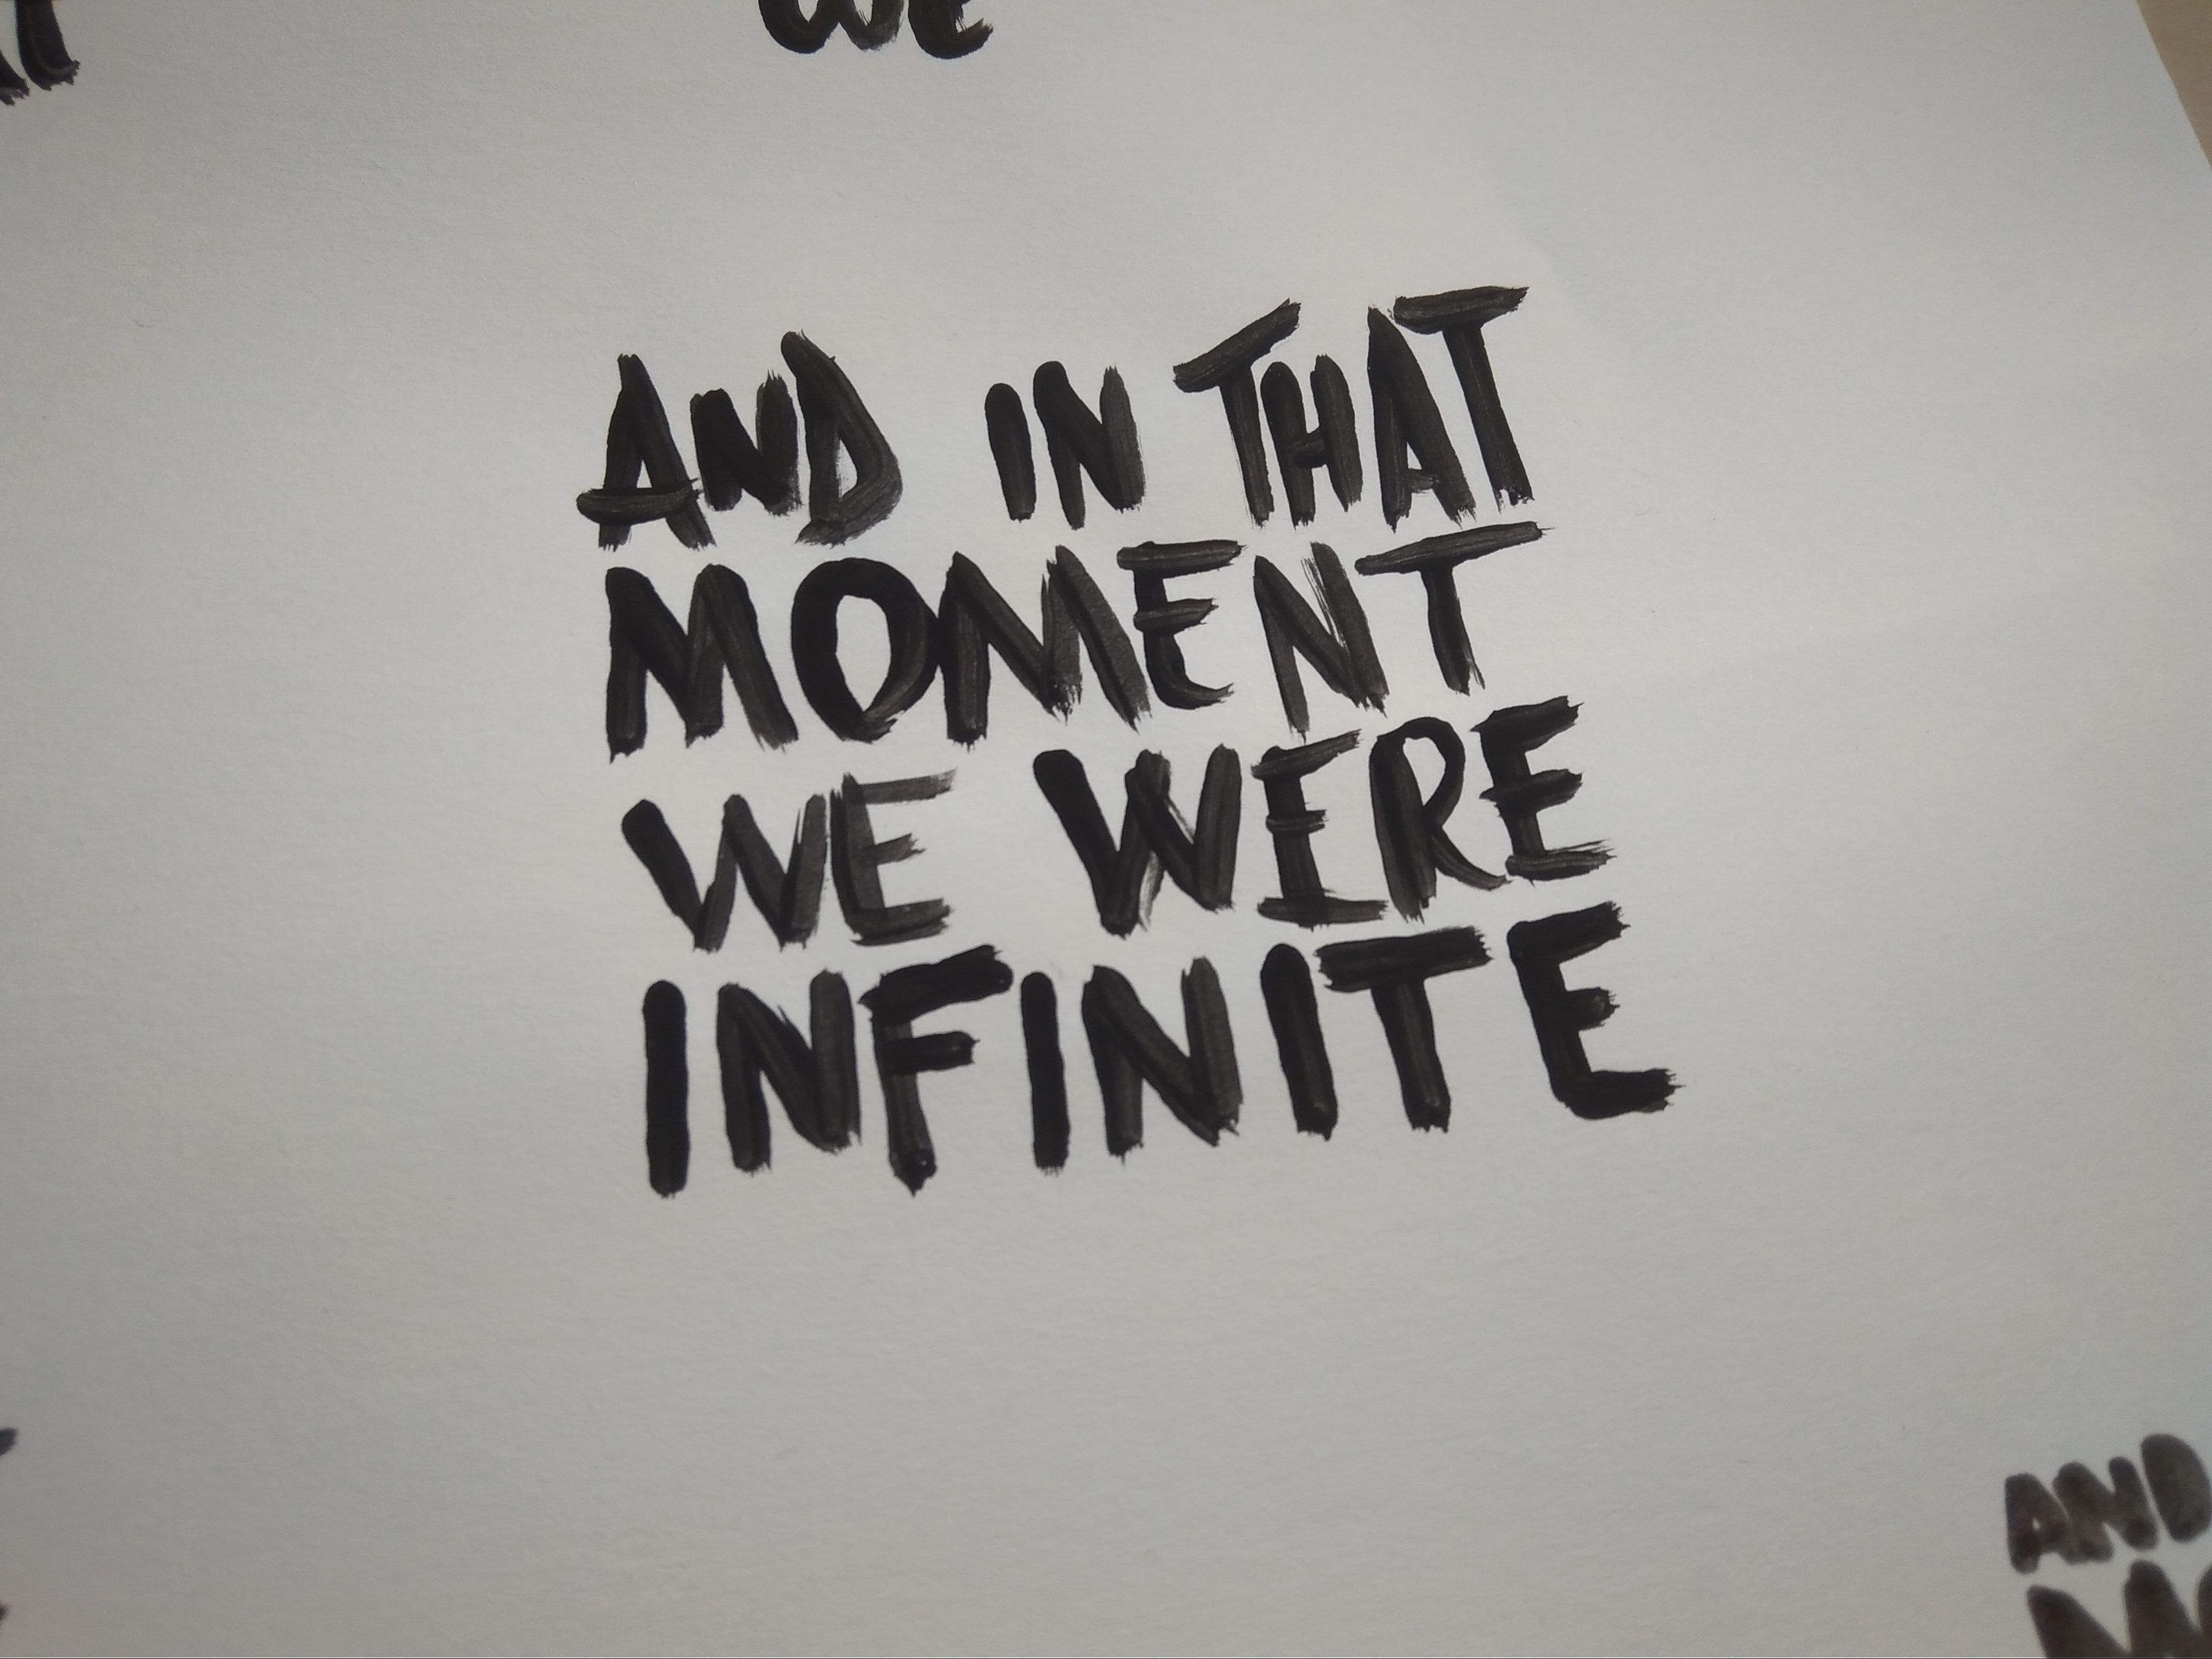 WE
AND IN THAT
MOMENT
WE WERE
INFINITE
AND